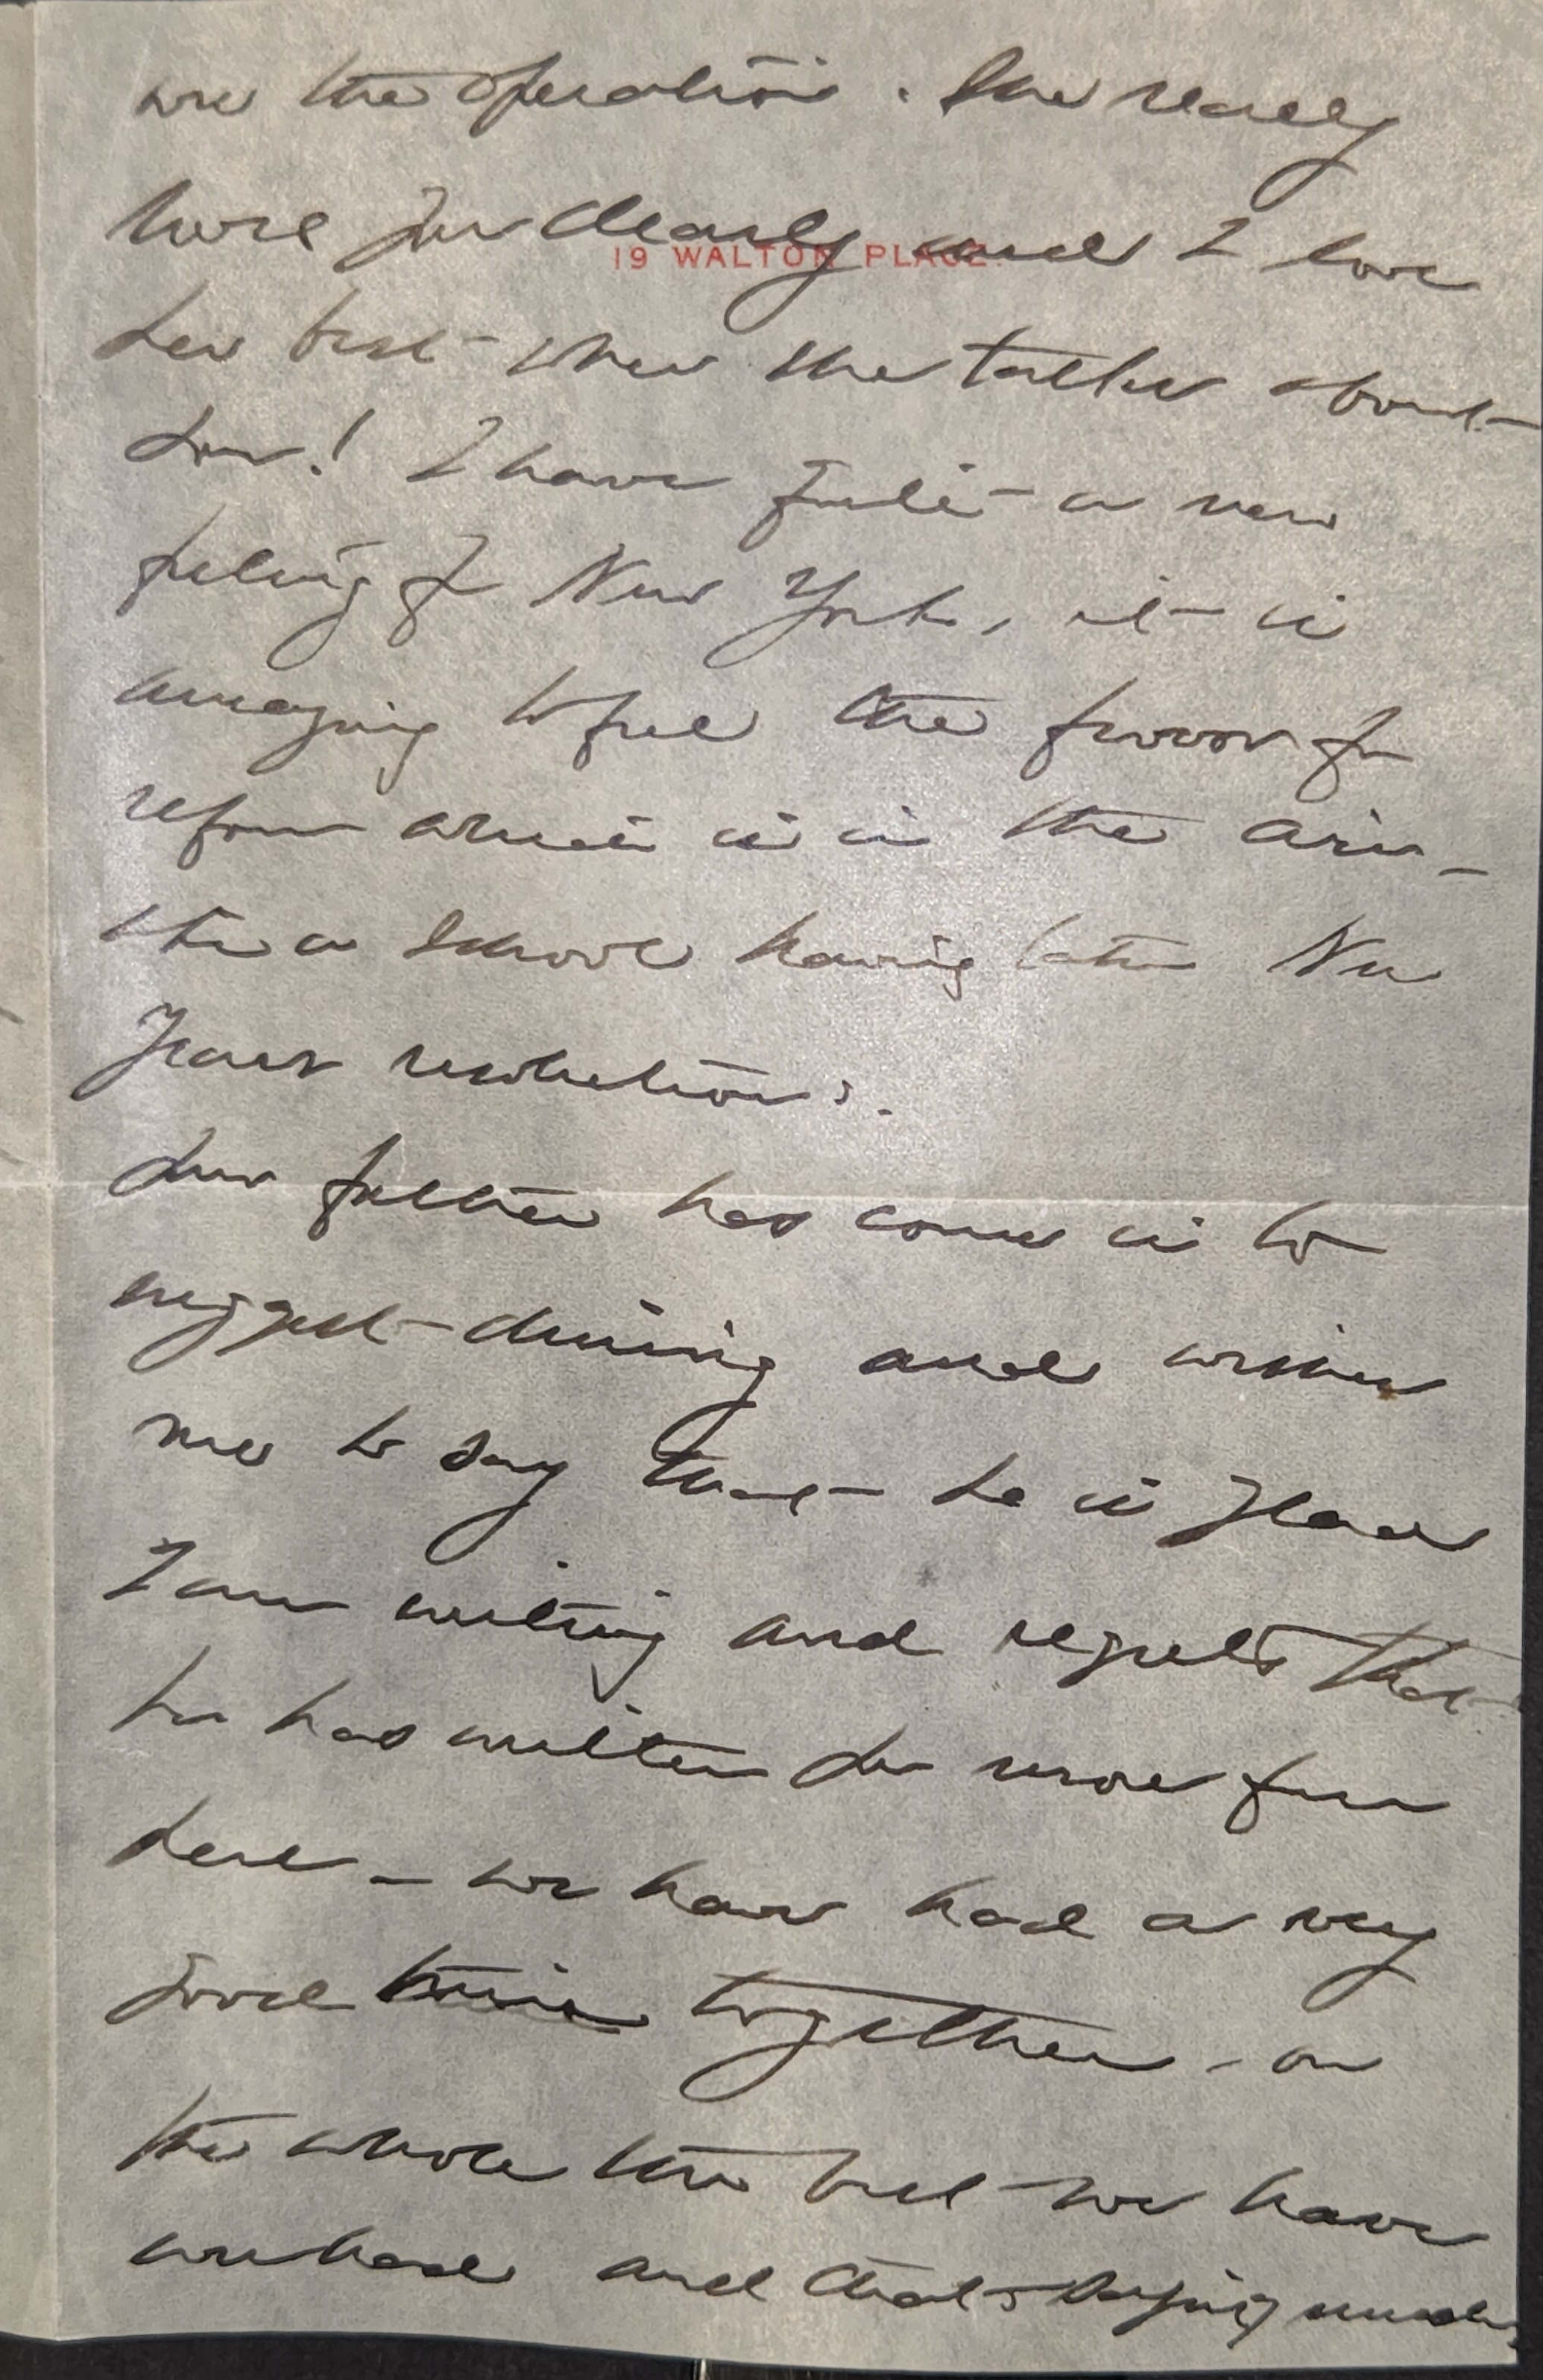 the operation. She really
loves you dearly and I love
her best when she talks about
you! I have quite a new
feeling of New York, it is
amazing to feel the fervor for
reform which is in the air –
like a school having taken New
Years resolutions.
Your father has come in to
suggest dining and wishes
me to say that he is glad
I am writing and regrets that
he has written you no more from
here – we have had a very
good time together – on
the whole the best we have
ever had and that's saying much,
19 WALTON PLACE.